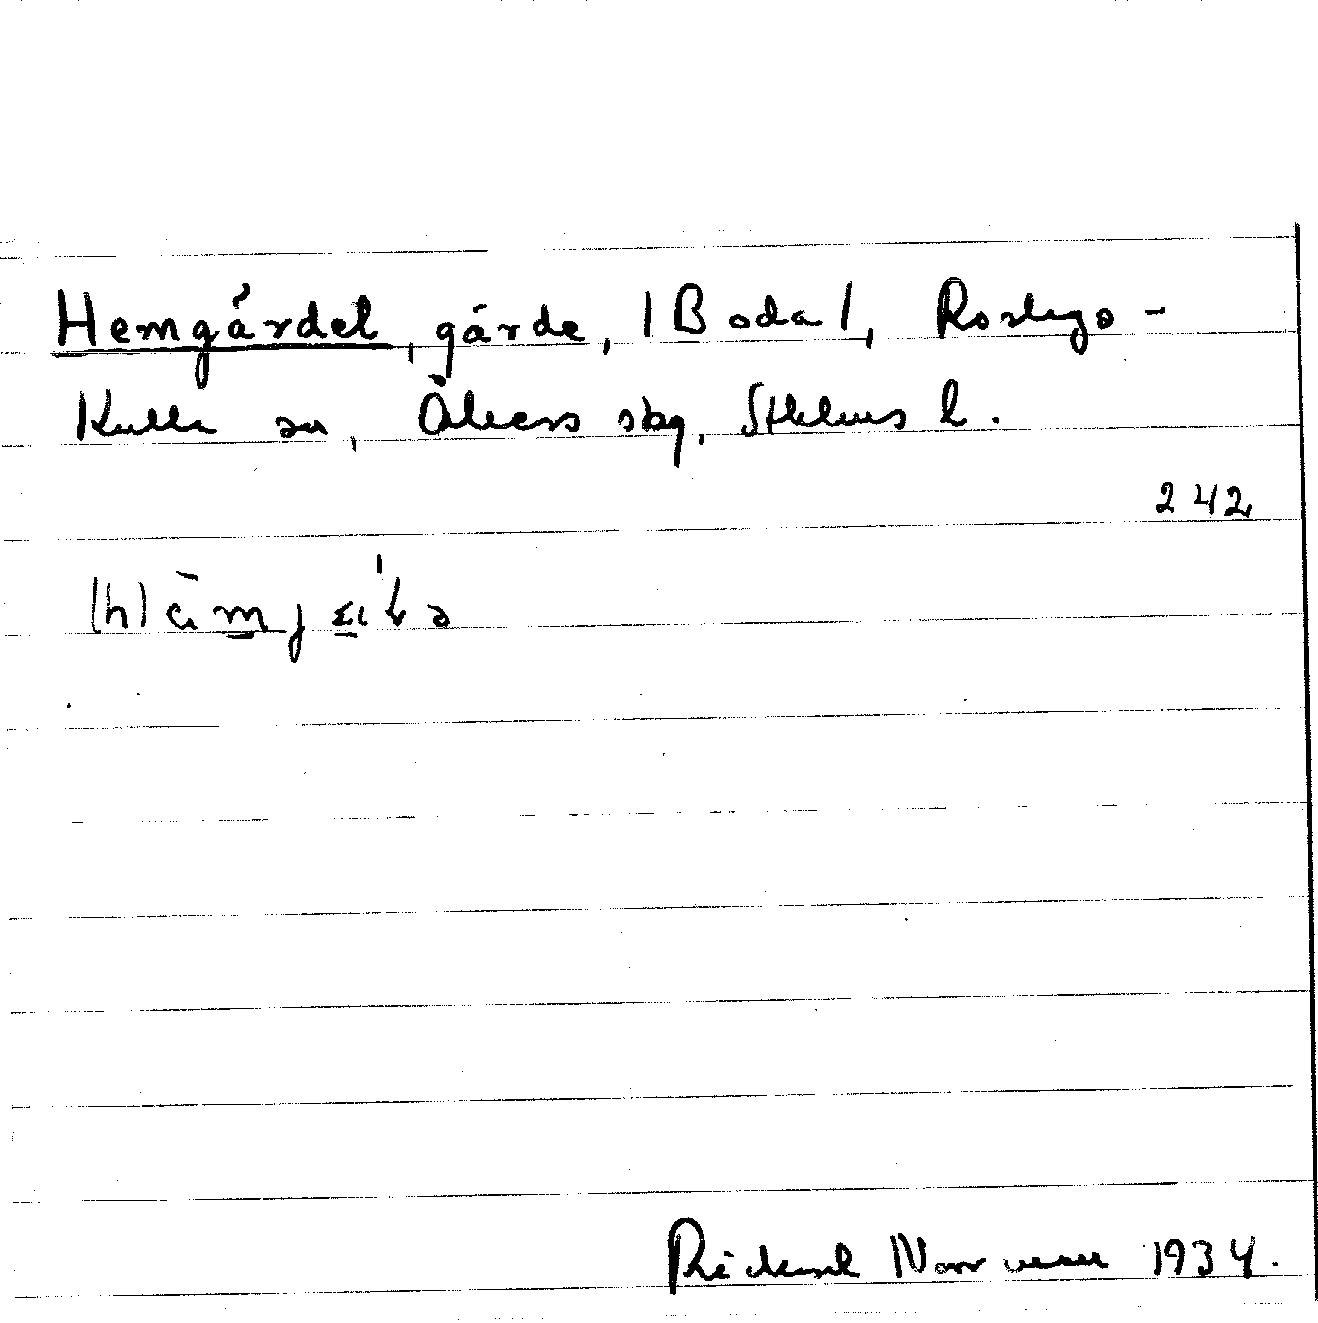 Hemgärdet, gärde, (Boda), Roslags-
Kulla sn, Åkers skg, Sthlms l.
242
Rickard Norrman 1934.